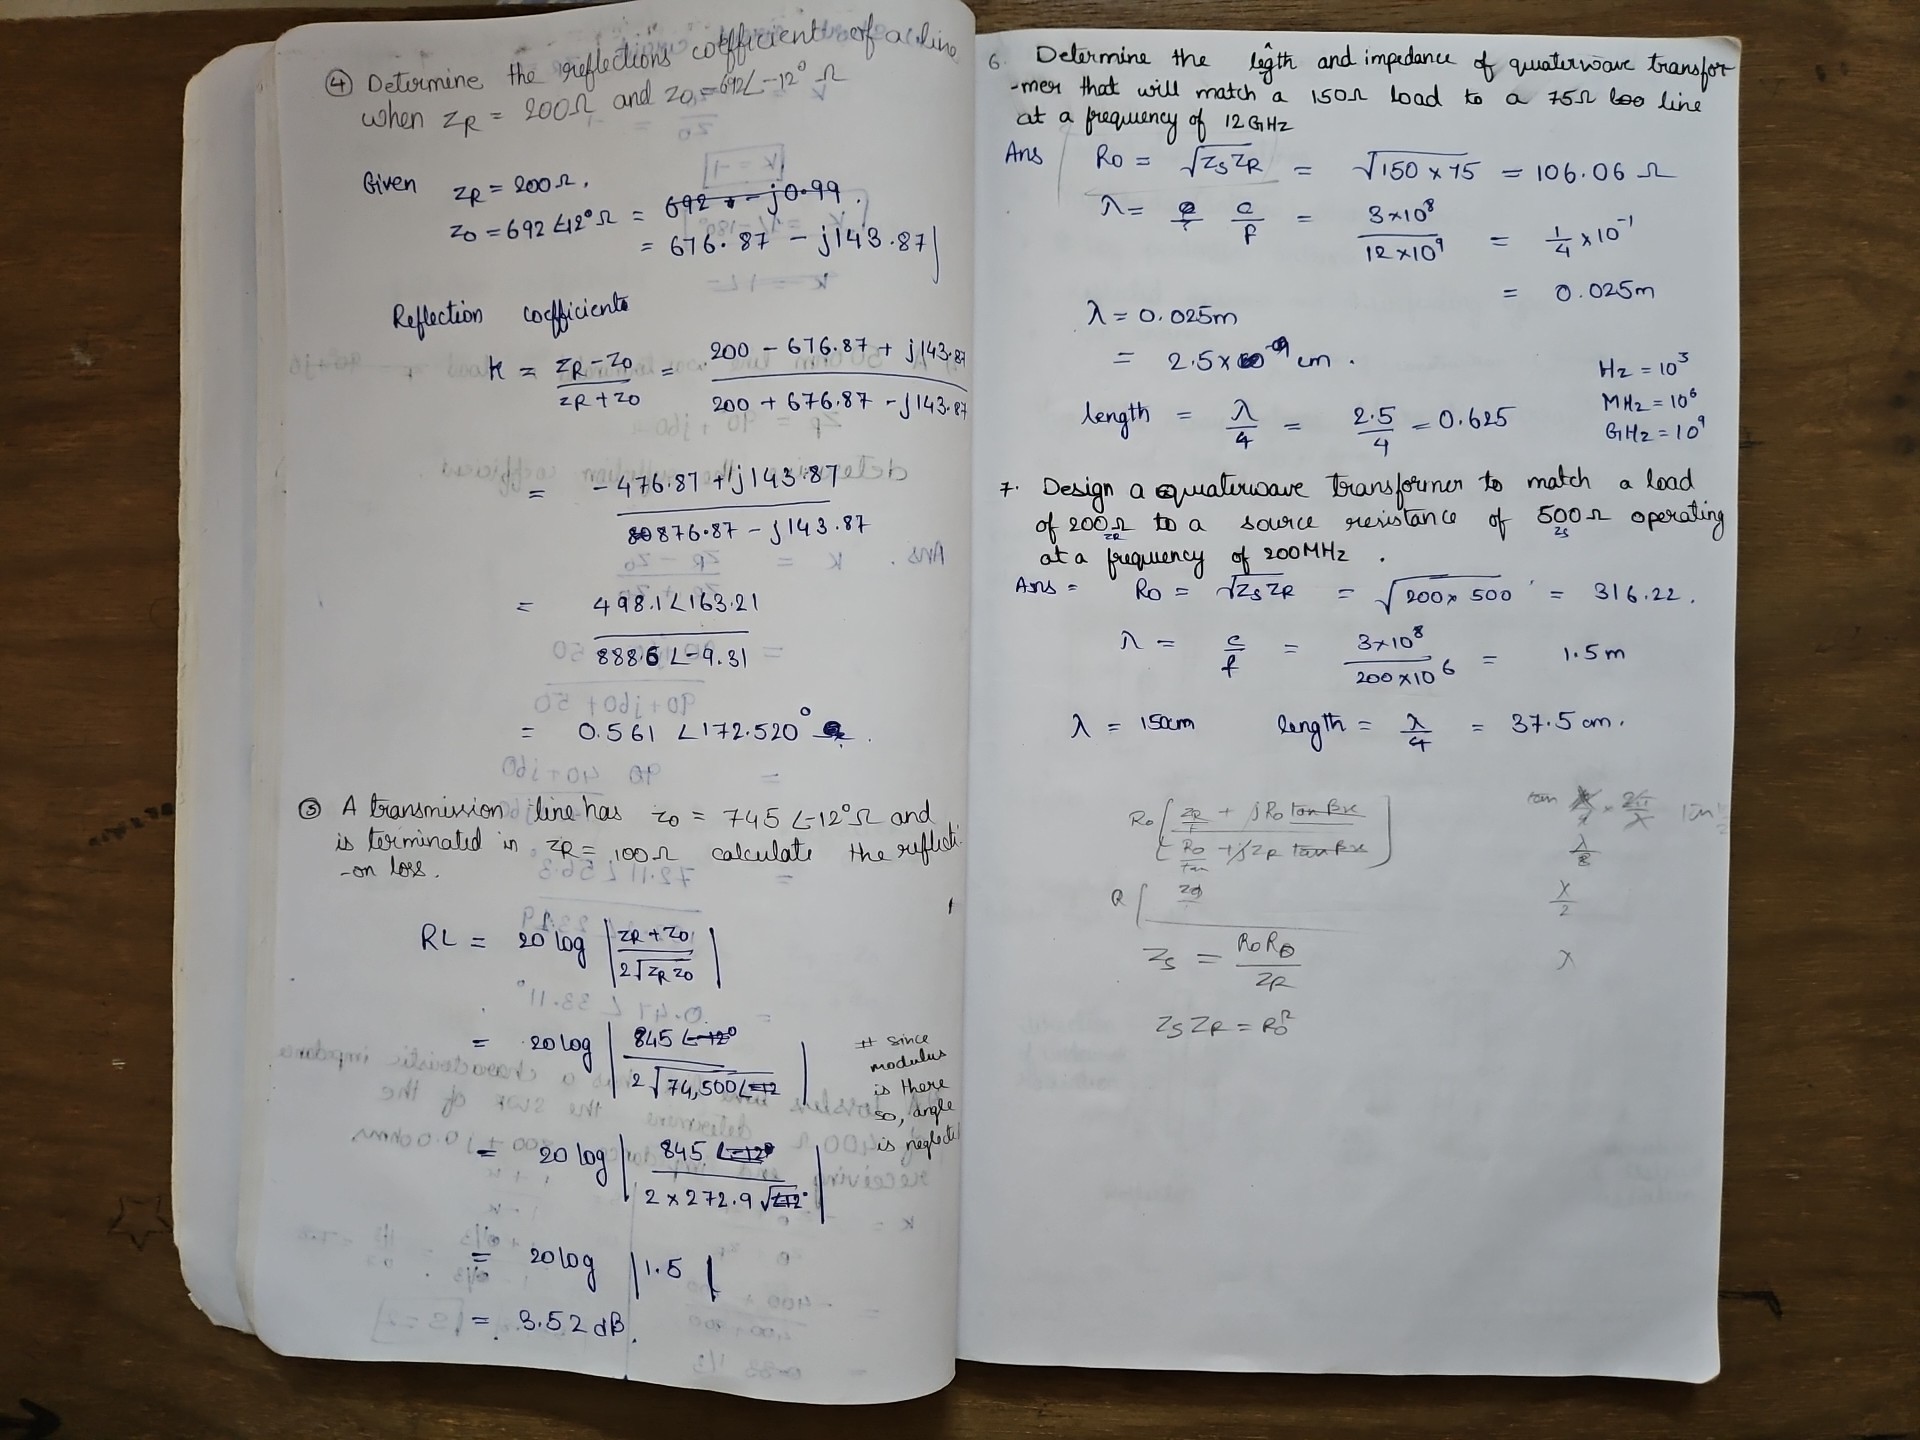 ④ Determine the reflections coefficient of a line
when ZR = 200Ω and Z0 = 692∠-12° Ω
Given ZR = 200Ω.
Z0 = 692∠12°Ω = 692 - j0.99.
= 676.87 - j143.87
Reflection coefficients
K = ZR-Z0 / ZR+Z0 = 200 - 676.87 + j143.87 / 200 + 676.87 - j143.87
= -476.87 + j143.87 / 876.87 - j143.87
= 498.1∠163.21 / 888.6∠-9.31
= 0.561 ∠172.520°.
⑤ A transmission line has Z0 = 745∠-12°Ω and
is terminated in ZR = 100Ω calculate the reflecti
-on loss.
RL = 20 log | ZR+Z0 / 2√ZR Z0 |
= 20 log | 845∠-12° / 2√74,500∠-12 |
# since
modulus
is there
so, angle
is neglected
= 20 log | 845∠-12° / 2×272.9√∠12° |
= 20 log |1.5|
= 3.52 dB.
6. Determine the legth and impedance of quaterwave transfor
-mer that will match a 150Ω load to a 75Ω line
at a frequency of 12GHz
Ans R0 = √ZSZR = √150×75 = 106.06 Ω
λ = c/f = 3×10⁸ / 12×10⁹ = 1/4 ×10⁻¹
= 0.025m
λ = 0.025m
= 2.5 cm.
length = λ/4 = 2.5/4 = 0.625
Hz = 10³
MHz = 10⁶
GHz = 10⁹
7. Design a quaterwave transformer to match a load
of 200Ω to a source resistance of 500Ω operating
ZR ZS
at a frequency of 200MHz.
Ans = R0 = √ZSZR = √200×500 = 316.22.
λ = c/f = 3×10⁸ / 200×10⁶ = 1.5m
λ = 150cm length = λ/4 = 37.5 cm.
R0 [ ZR + jR0 tan βx / R0 + jZR tan βx ]
ZS = R0R0 / ZR
ZSZR = R0²